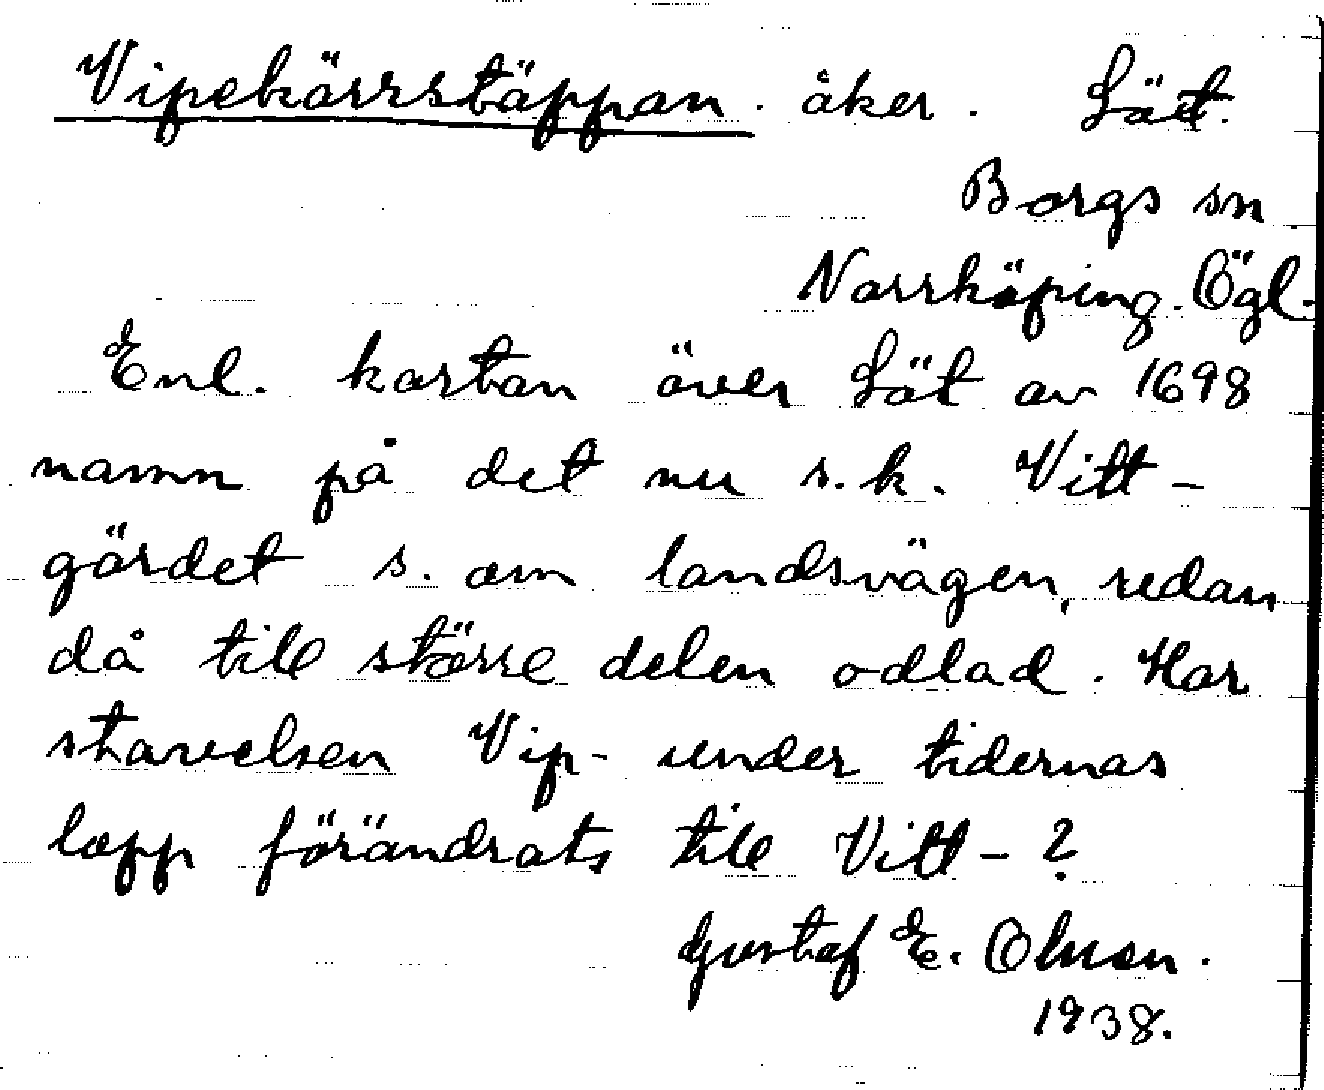 Vipekärrstäppan. åker. Lät.
Borgs sn
Norrköping. Ögl.
Enl. kartan över Lät av 1698
namn på det nu s.k. Vitt-
gärdet s. om landsvägen, redan
då till större delen odlad. Har
stavelsen Vip- under tidernas
lopp förändrats till Vitt-?
Gustaf E. Olsson.
1938.